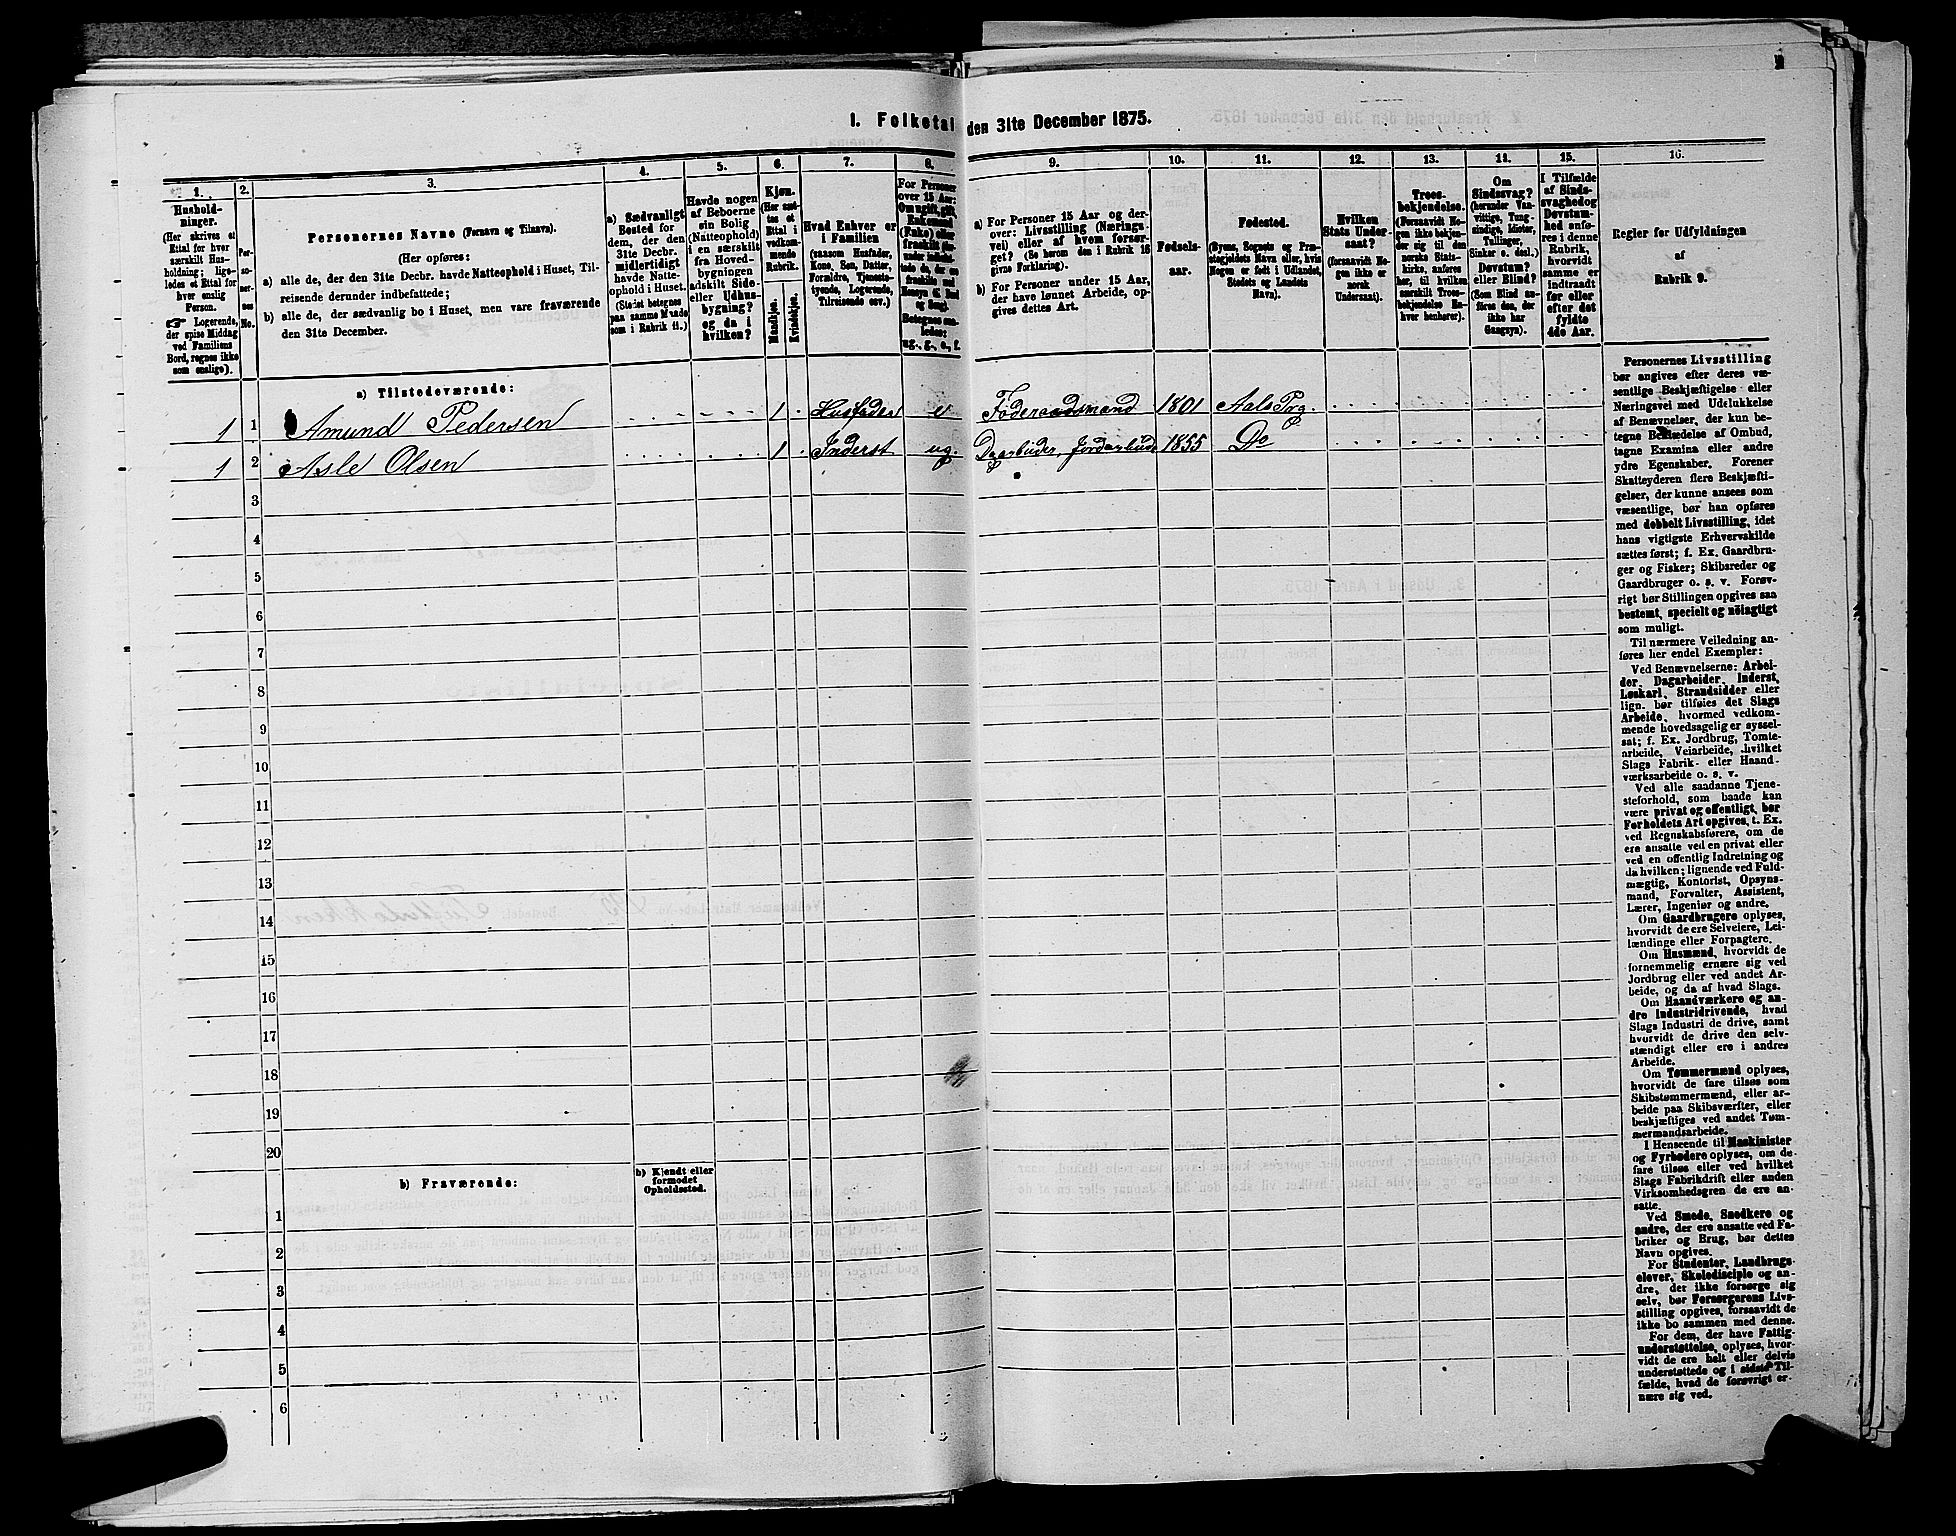 1. Folketal den 31te December 1875.
1.
2.
3.
4.
5.
6.
7.
8.
9.
10.
11.
12.
13.
14.
15.
16.
Hushold-
ninger.
(Her skrives et
Ettal for hver
særskilt Hus-
holdning; lige-
ledes et Ettal for
hver enslig
Person.
☞ Logerende,
der spise Middag
ved Familiens
Bord, regnes ikke
som enslige).
Per-
so-
ner-
nes
No.
Personernes Navne (Fornavn og Tilnavn).
(Her opføres:
a) alle de, der den 31te Decbr. havde Natteophold i Huset, Til-
reisende derunder indbefattede;
b) alle de, der sædvanlig bo i Huset, men vare fraværende
den 31te December.
a) Sædvanligt
Bosted for
dem, der den
31te Decbr.
midlertidigt
havde Natte-
ophold i Huset.
(Stedet betegnes
paa samme Maade
som i Rubrik 11.)
Havde nogen
af Beboerne
sin Bolig
(Natteophold)
i en særskilt
fra Hoved-
bygningen
adskilt Side-
eller Udhus-
bygning?
og da i
hvilken?
Kjøn.
(Her sæt-
tes et
Ettal i
vedkom-
mende
Rubrik.
Mandkjøn.
Kvindekjøn.
Hvad Enhver er
i Familien
(saasom Husfader,
Kone, Søn, Datter,
Forældre, Tjeneste-
tyende, Logerende,
Tilreisende osv.)
For Personer
over 15 Aar:
Om ugift, gift,
Enkemand
(Enke) eller
fraskilt
Betegnes saa-
ledes:
ug., g., e., f.
a) For Personer 15 Aar og der-
over: Livsstilling (Nærings-
vei) eller af hvem forsør-
get? (Se herom den i Rubrik 16
givne Forklaring).
b) For Personer under 15 Aar,
der have lønnet Arbeide, op-
gives dettes Art.
Fødsels-
aar.
Fødested.
(Byens, Sognets og Præ-
stegjeldets Navn eller, hvis
Nogen er født i Udlandet,
Stedets og Landets
Navn).
Hvilken
Stats Under-
saat?
(forsaavidt No-
gen ikke er
norsk
Undersaat).
Troes-
bekjendelse.
(Forsaavidt No-
gen ikke bekjen-
der sig til den
norske Stats-
kirke, anføres
her, til hvilken
særskilt Troes-
bekjendelse En-
hver henhører).
Om
Sindssvag?
(herunder Van-
vittige, Tung-
sindige, Idioter,
Tullinger,
Sinker o. desl.).
Døvstum?
eller Blind?
(Som Blind an-
føres den, der
ikke har
Gangsyn).
I Tilfælde
af Sinds-
svaghed og
Døvstum-
hed anfø-
res i denne
Rubrik,
hvorvidt
samme er
indtraadt
før eller
efter det
fyldte
4de Aar.
Regler for Udfyldningen
af
Rubrik 9.
a) Tilstedeværende:
1 1 Amund Pedersen 1 Husfader e Føderaadsmand 1801 Aals Prg.
1 2 Asle Olsen 1 Inderst ug. 1855 Do
3
4
5
6
7
8
9
10
11
12
13
14
15
16
17
18
19
20
b) Fraværende:
b) Kjendt eller
formodet
Opholdssted.
1
2
3
4
5
6
Personernes Livsstilling
bør angives efter deres væ-
sentlige Beskjæftigelse eller
Næringsvei med Udelukkelse
af Benævnelser, der kun be-
tegne Beklædelse af Ombud,
tagne Examina eller andre
ydre Egenskaber. Forener
Skatteyderen flere Beskjæfti-
gelser, der kunne ansees som
væsentlige, bør han opføres
med dobbelt Livsstilling, idet
hans vigtigste Erhvervskilde
sættes først; f. Ex. Gaardbru-
ger og Fisker; Skibsreder og
Gaardbruger o. s. v. Forøv-
rigt bør Stillingen opgives saa
bestemt, specielt og nöiagtigt
som muligt.
Til nærmere Veiledning an-
føres her endel Exempler:
Ved Benævnelserne: Arbei-
der, Dagarbeider, Inderst,
Løskarl, Strandsidder eller
lign. bør tilføies det Slags
Arbeide, hvormed vedkom-
mende hovedsagelig er syssel-
sat; f. Ex. Jordbrug, Tomte-
arbeide, Veiarbeide, hvilket
Slags Fabrik- eller Haand-
værksarbeide o. s. v.
Ved alle saadanne Tjene-
steforhold, som baade kan
være privat og offentligt, bør
Forholdets Art opgives, t. Ex.
ved Regnskabsførere, om de
ere ansatte ved en privat eller
ved en offentlig Indretning og
da hvilken; lignende ved Fuld-
mægtig, Kontorist, Opsyns-
mand, Forvalter, Assistent,
Lærer, Ingeniør og andre.
Om Gaardbrugere oplyses,
hvorvidt de ere Selveiere, Lei-
lændinge eller Forpagtere.
Om Husmænd, hvorvidt de
fornemmelig ernære sig ved
Jordbrug eller ved andet Ar-
beide, og da af hvad Slags.
Om Haandværkere og an-
dre Industridrivende, hvad
Slags Industri de drive, samt
hvorvidt de drive den selv-
stændigt eller ere i andres
Arbeide.
Om Tømmermænd oplyses,
hvorvidt de fare tilsøs som
Skibstømmermænd, eller ar-
beide paa Skibsværfter, eller
beskjæftiges ved andet Tøm-
mermandsarbeide.
I Henseende til Maskinister
og Fyrbødere oplyses, om de
fare tilsøs eller ved hvilket
Slags Fabrikdrift eller anden
Virksomhedsgren de ere an-
satte.
Ved Smede, Snedkere og
andre, der ere ansatte ved Fa-
briker og Brug, bør dettes
Navn opgives.
For Studenter, Landbrugs-
elever, Skoledisciple og an-
dre, der ikke forsørge sig
selv, bør Forsørgerens Livs-
stilling opgives, forsaavidt de
ikke bo sammen med denne.
For dem, der have Fattig-
understøttelse, oplyses, hvor-
vidt de ere helt eller delvis
understøttede og i sidste Til-
fælde, hvad de forøvrigt er-
nære sig ved.